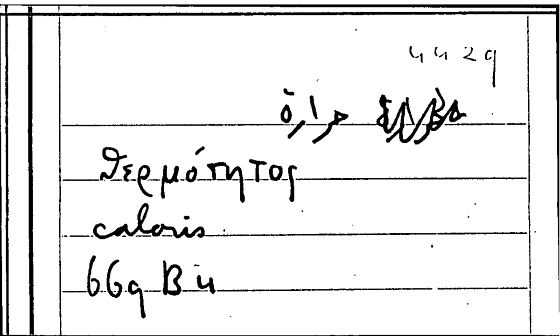 442q
حرارة
θερμότητος
caloris
669 B 4